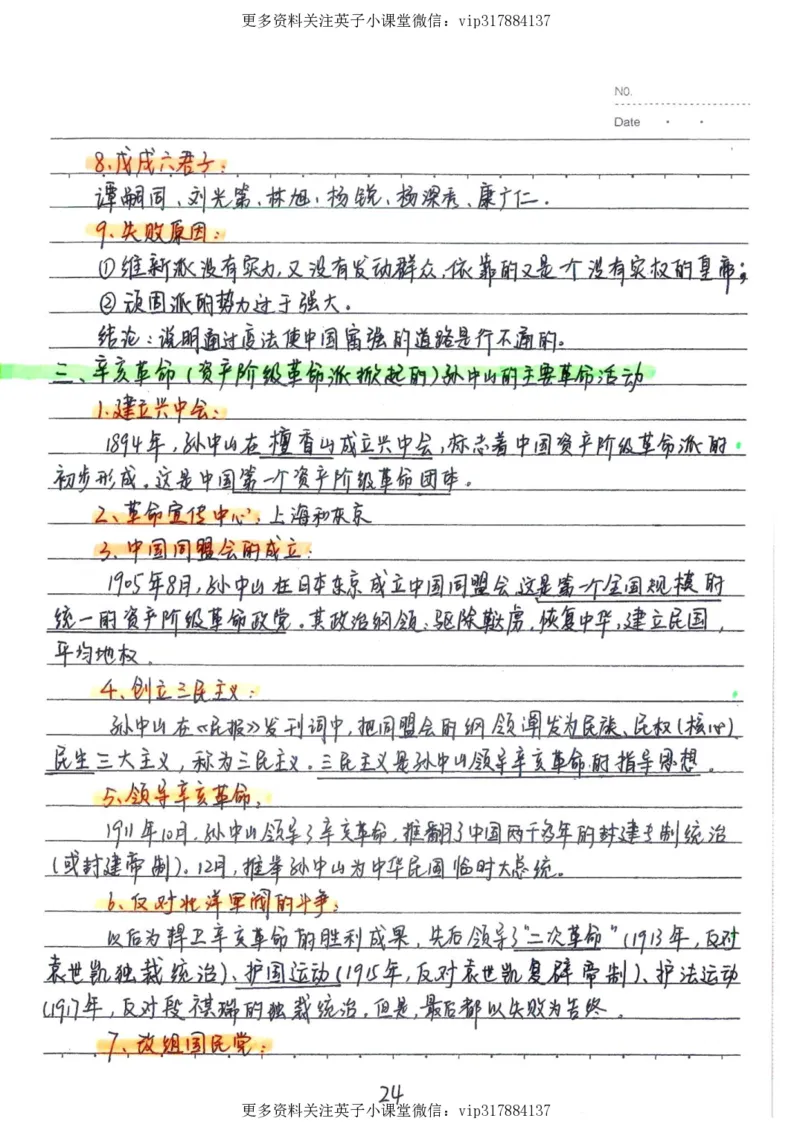 更多资料关注英子小课堂微信：vip317884137
NO.
Date
8、戊戌六君子：
谭嗣同、刘光第、林旭、杨锐、杨深秀、康广仁.
9、失败原因：
①维新派没有实力,又没有发动群众,依靠的又是个没有实权的皇帝；
②顽固派的势力过于强大。
结论：说明通过变法使中国富强的道路是行不通的。
三、辛亥革命(资产阶级革命派掀起的)孙中山的主要革命活动
1.建立兴中会：
1894年,孙中山在檀香山成立兴中会,标志着中国资产阶级革命派的
初步形成.这是中国第一个资产阶级革命团体。
2、革命宣传中心：上海和东京
3、中国同盟会的成立：
1905年8月,孙中山在日本东京成立中国同盟会.这是第一个全国规模的
统一的资产阶级革命政党.其政治纲领：驱除鞑虏,恢复中华,建立民国,
平均地权.
4、创立三民主义：
孙中山在《民报》发刊词中,把同盟会的纲领阐发为民族、民权(核心)
民生三大主义,称为三民主义.三民主义是孙中山领导辛亥革命的指导思想.
5、领导辛亥革命：
1911年10月,孙中山领导了辛亥革命,推翻了中国两千多年的封建专制统治
(或封建帝制).12月,推举孙中山为中华民国临时大总统。
6、反对北洋军阀的斗争：
以后为捍卫辛亥革命的胜利成果,先后领导了"二次革命"(1913年,反对
袁世凯独裁统治)、护国运动(1915年,反对袁世凯复辟帝制)、护法运动
(1917年,反对段祺瑞的独裁统治.但是,最后都以失败为告终.
7、改组国民党：
24
更多资料关注英子小课堂微信：vip317884137